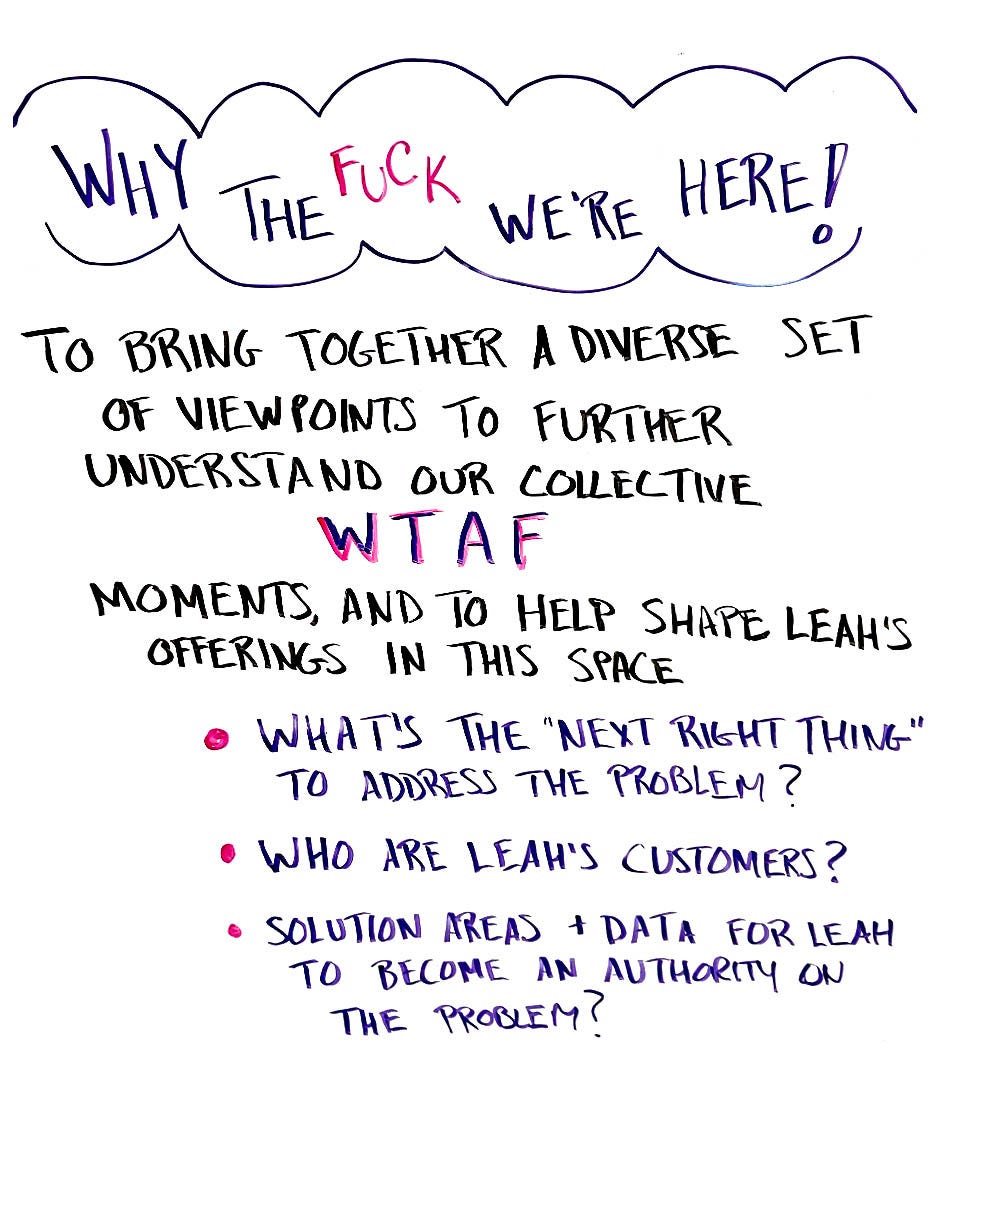 WHY THE FUCK WE'RE HERE!
TO BRING TOGETHER A DIVERSE SET
OF VIEWPOINTS TO FURTHER
UNDERSTAND OUR COLLECTIVE
WTAF
MOMENTS, AND TO HELP SHAPE LEAH'S
OFFERINGS IN THIS SPACE
• WHAT'S THE "NEXT RIGHT THING"
TO ADDRESS THE PROBLEM?
• WHO ARE LEAH'S CUSTOMERS?
• SOLUTION AREAS + DATA FOR LEAH
TO BECOME AN AUTHORITY ON
THE PROBLEM?